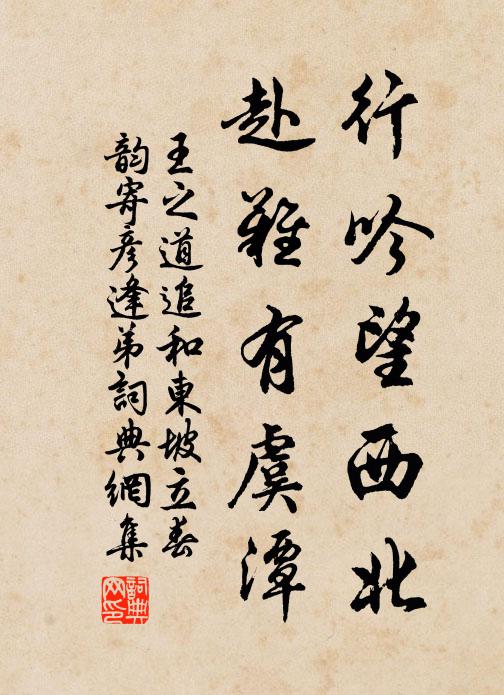 行吟望西北
赴難有虞潭
王之道追和東坡立春
韵寄彥逢弟詞典網集
詞典
網印